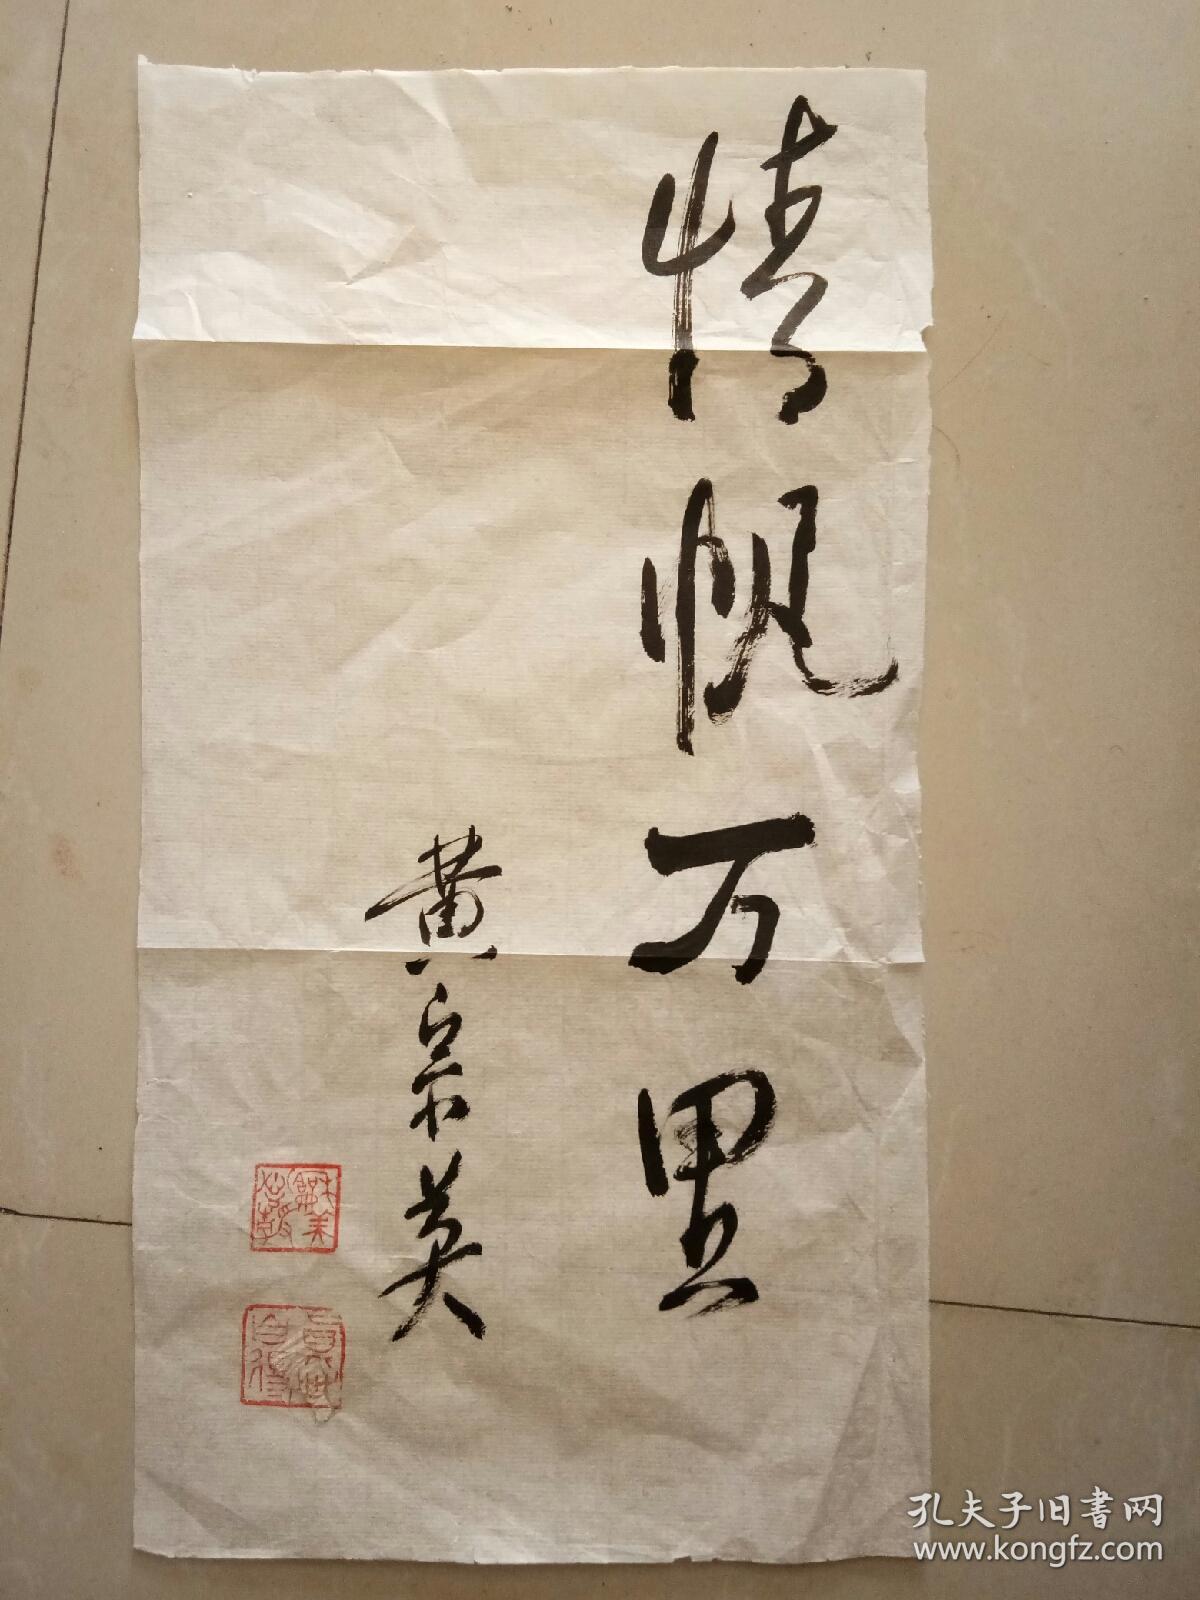 情帆万里
黄宗英
孔夫子旧书网
www.kongfz.com